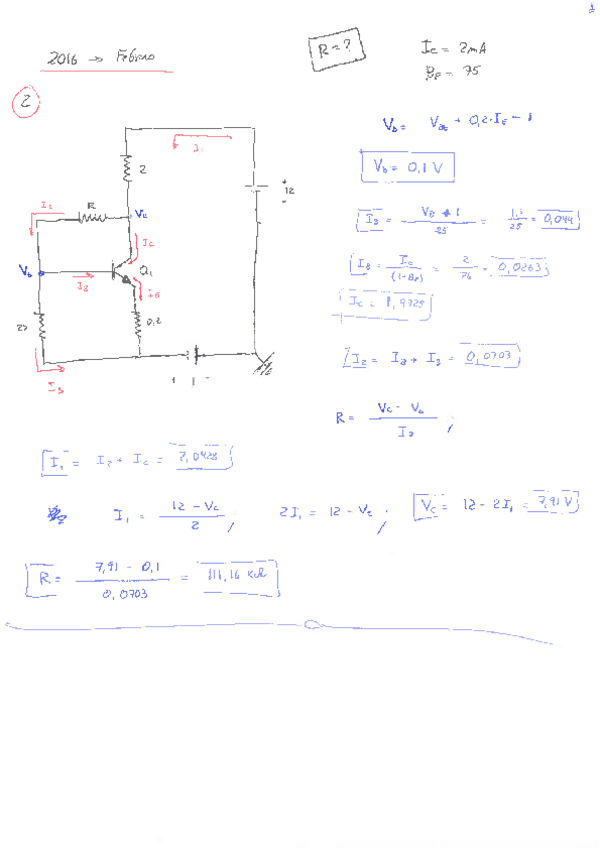 2016 → Febrero
R = ?
I_C = 2mA
β_F = 75
2
I_1
2
12
R
I_2
V_C
I_C
V_b
I_B
Q_1
I_E
0,2
I_3
V_b = V_BE + 0,2·I_E - 1
V_b = 0,1 V
I_3 = V_B + 1 / 25 = 1,1 / 25 = 0,044
I_B = I_C / (1+β_F) = 2 / 76 = 0,0263
I_C = 1,9725
I_2 = I_B + I_3 = 0,0703
R = V_C - V_b / I_2 ;
I_1 = I_2 + I_C = 2,0428
I_1 = 12 - V_C / 2 ; 2I_1 = 12 - V_C ; V_C = 12 - 2I_1 = 7,91 V
R = 7,91 - 0,1 / 0,0703 = 111,16 kΩ